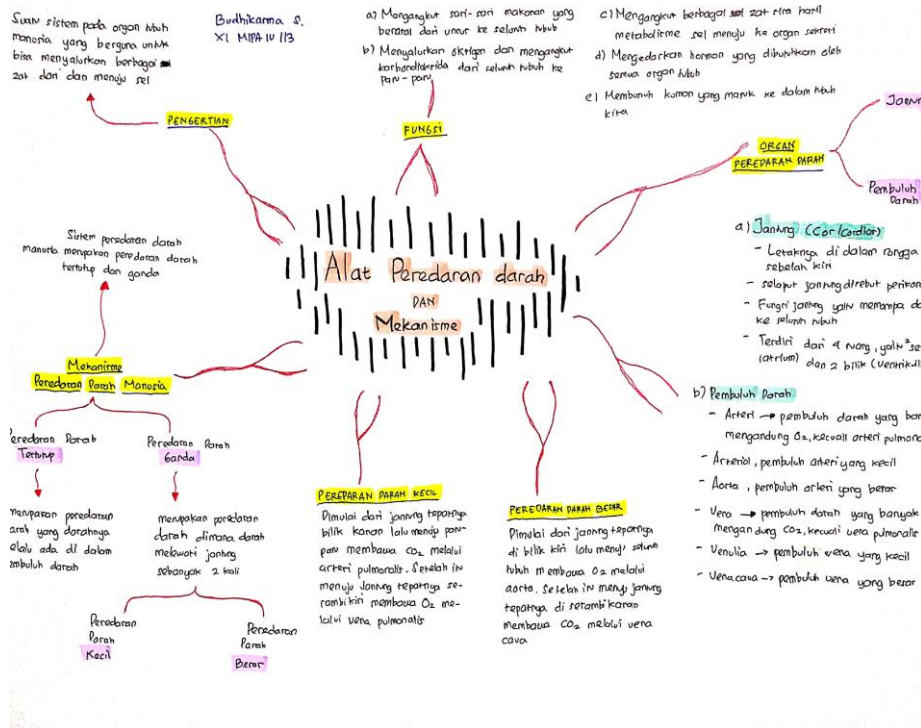 Suatu sistem pada organ tubuh
manusia yang berguna untuk
bisa menyalurkan berbagai
zat dari dan menuju sel
PENGERTIAN
Budhikarma S.
XI MIPA IV 113
a) Mengangkut sari-sari makanan yang
berasal dari unur ke seluruh tubuh
b) Menyalurkan oksigen dan mengangkut
karbondioksida dari seluruh tubuh ke
paru-paru
FUNGSI
c) Mengangkut berbagai zat sisa hasil
metabolisme sel menuju ke organ sekresi
d) Mengedarkan hormon yang dibutuhkan oleh
semua organ tubuh
e) Membunuh kuman yang masuk ke dalam tubuh
kita
ORGAN
PEREDARAN DARAH
Pembuluh
Darah
Alat Peredaran darah
DAN
Mekanisme
Sistem peredaran darah
manusia merupakan peredaran darah
tertutup dan ganda
Mekanisme
Peredaran Darah Manusia
Peredaran Darah
Tertutup
merupakan peredaran
darah yang darahnya
selalu ada di dalam
pembuluh darah
Peredaran Darah
Ganda
merupakan peredaran
darah dimana darah
melewati jantung
sebanyak 2 kali
Peredaran
Darah
Kecil
Peredaran
Darah
Besar
PEREDARAN DARAH KECIL
Dimulai dari jantung tepatnya
bilik kanan lalu menuju paru-
paru membawa CO2 melalui
arteri pulmonalis. Setelah in
menuju Jantung tepatnya se-
rambi kiri membawa O2 me-
lalui vena pulmonalis
PEREDARAN DARAH BESAR
Dimulai dari jantung tepatnya
di bilik kiri lalu menuju seluruh
tubuh membawa O2 melalui
aorta. Setelah in menuju jantung
tepatnya di serambi kanan
membawa CO2 melalui vena
cava
a) Jantung (Cor/Cordial)
- Letaknya di dalam rongga
sebelah kiri
- selaput jantung disebut
- Fungsi jantung yaitu memompa
ke seluruh tubuh
- Terdiri dari 4 ruang, yaitu 2
(atrium) dan 2 bilik
b) Pembuluh Darah
- Arteri → pembuluh darah yang
mengandung O2, kecuali arteri
- Arteriol, pembuluh arteri yang kecil
- Aorta, pembuluh arteri yang besar
- Vena → pembuluh darah yang banyak
mengandung CO2, kecuali vena pulmonalis
- Venulia → pembuluh vena yang kecil
- Vena cava → pembuluh vena yang besar